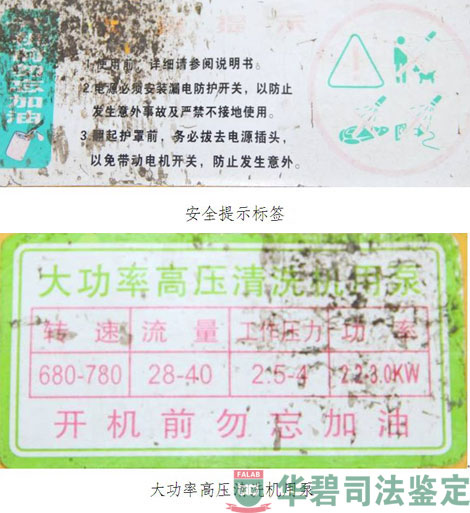 加油
1.使用前，详细请参阅说明书。
2.电源必须安装漏电防护开关，以防止
发生意外事故及严禁不接地使用。
3.翻起护罩前，务必拔去电源插头，
以免带动电机开关，防止发生意外。
安全提示标签
大功率高压清洗机用泵
转速 流量 工作压力 功率
680-780 28-40 2.5-4 2.2-3.0KW
开机前勿忘加油
大功率高压清洗机用泵
FALAB
华碧司法鉴定